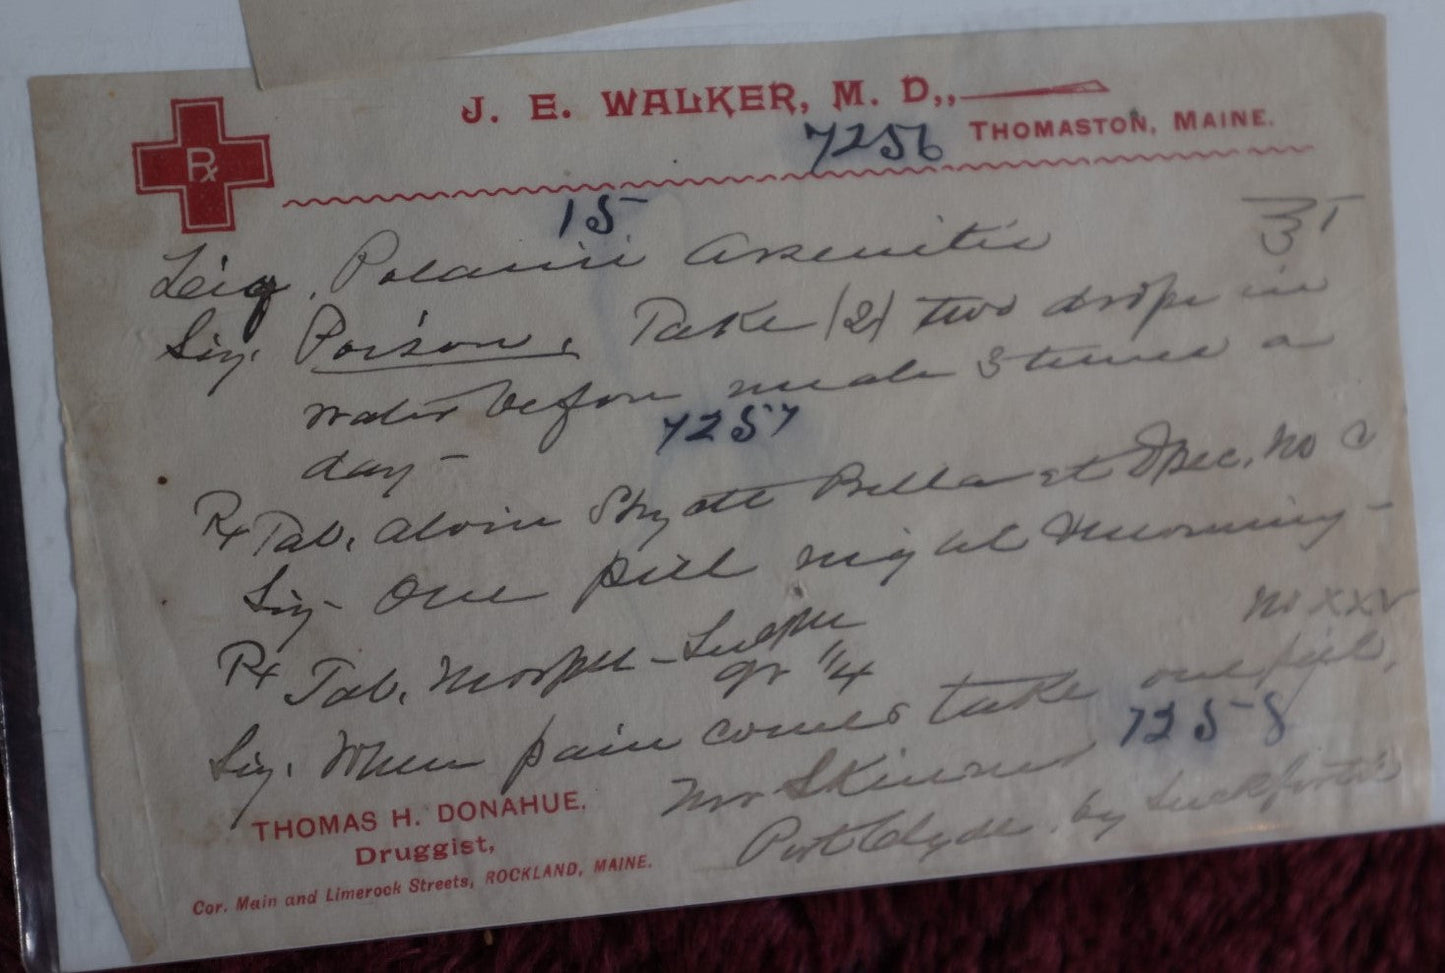 J. E. WALKER, M. D.,,
7256 THOMASTON, MAINE.
Rx
15
Liq. Potassii Arsenitis ℥ T
Sig. Poison. Take (2) two drops in
water before meals 3 times a
day-
7257
Rx Tab. Aloin Strych Bella et Ipec. No C
Sig- One pill night & morning-
Rx Tab. Morph-Sulph No XXV
gr 1/4
Sig. When pain comes take one pill,
7258
Mr Skinner
Port Clyde. by
THOMAS H. DONAHUE.
Druggist,
Cor. Main and Limerock Streets, ROCKLAND, MAINE.